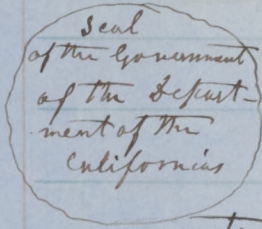 Seal
of the Government
of the Depart-
ment of the
Californias